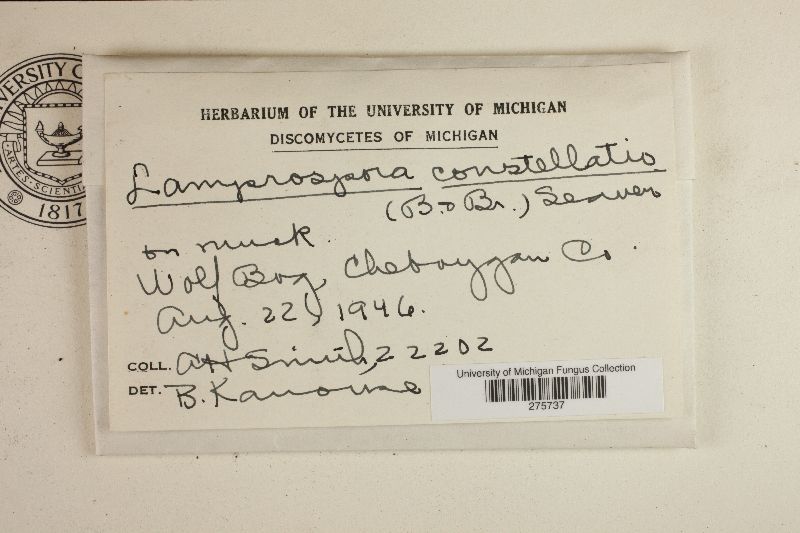 HERBARIUM OF THE UNIVERSITY OF MICHIGAN
DISCOMYCETES OF MICHIGAN
Lamprospora constellatio
(B. & Br.) Seaver
on muck.
Wolf Bog, Cheboygan Co.
Aug. 22, 1946.
COLL. AH Smith, 22202
DET. B. Kanouse
University of Michigan Fungus Collection
275737
VERSITY
ARTES · SCIENTI
1817